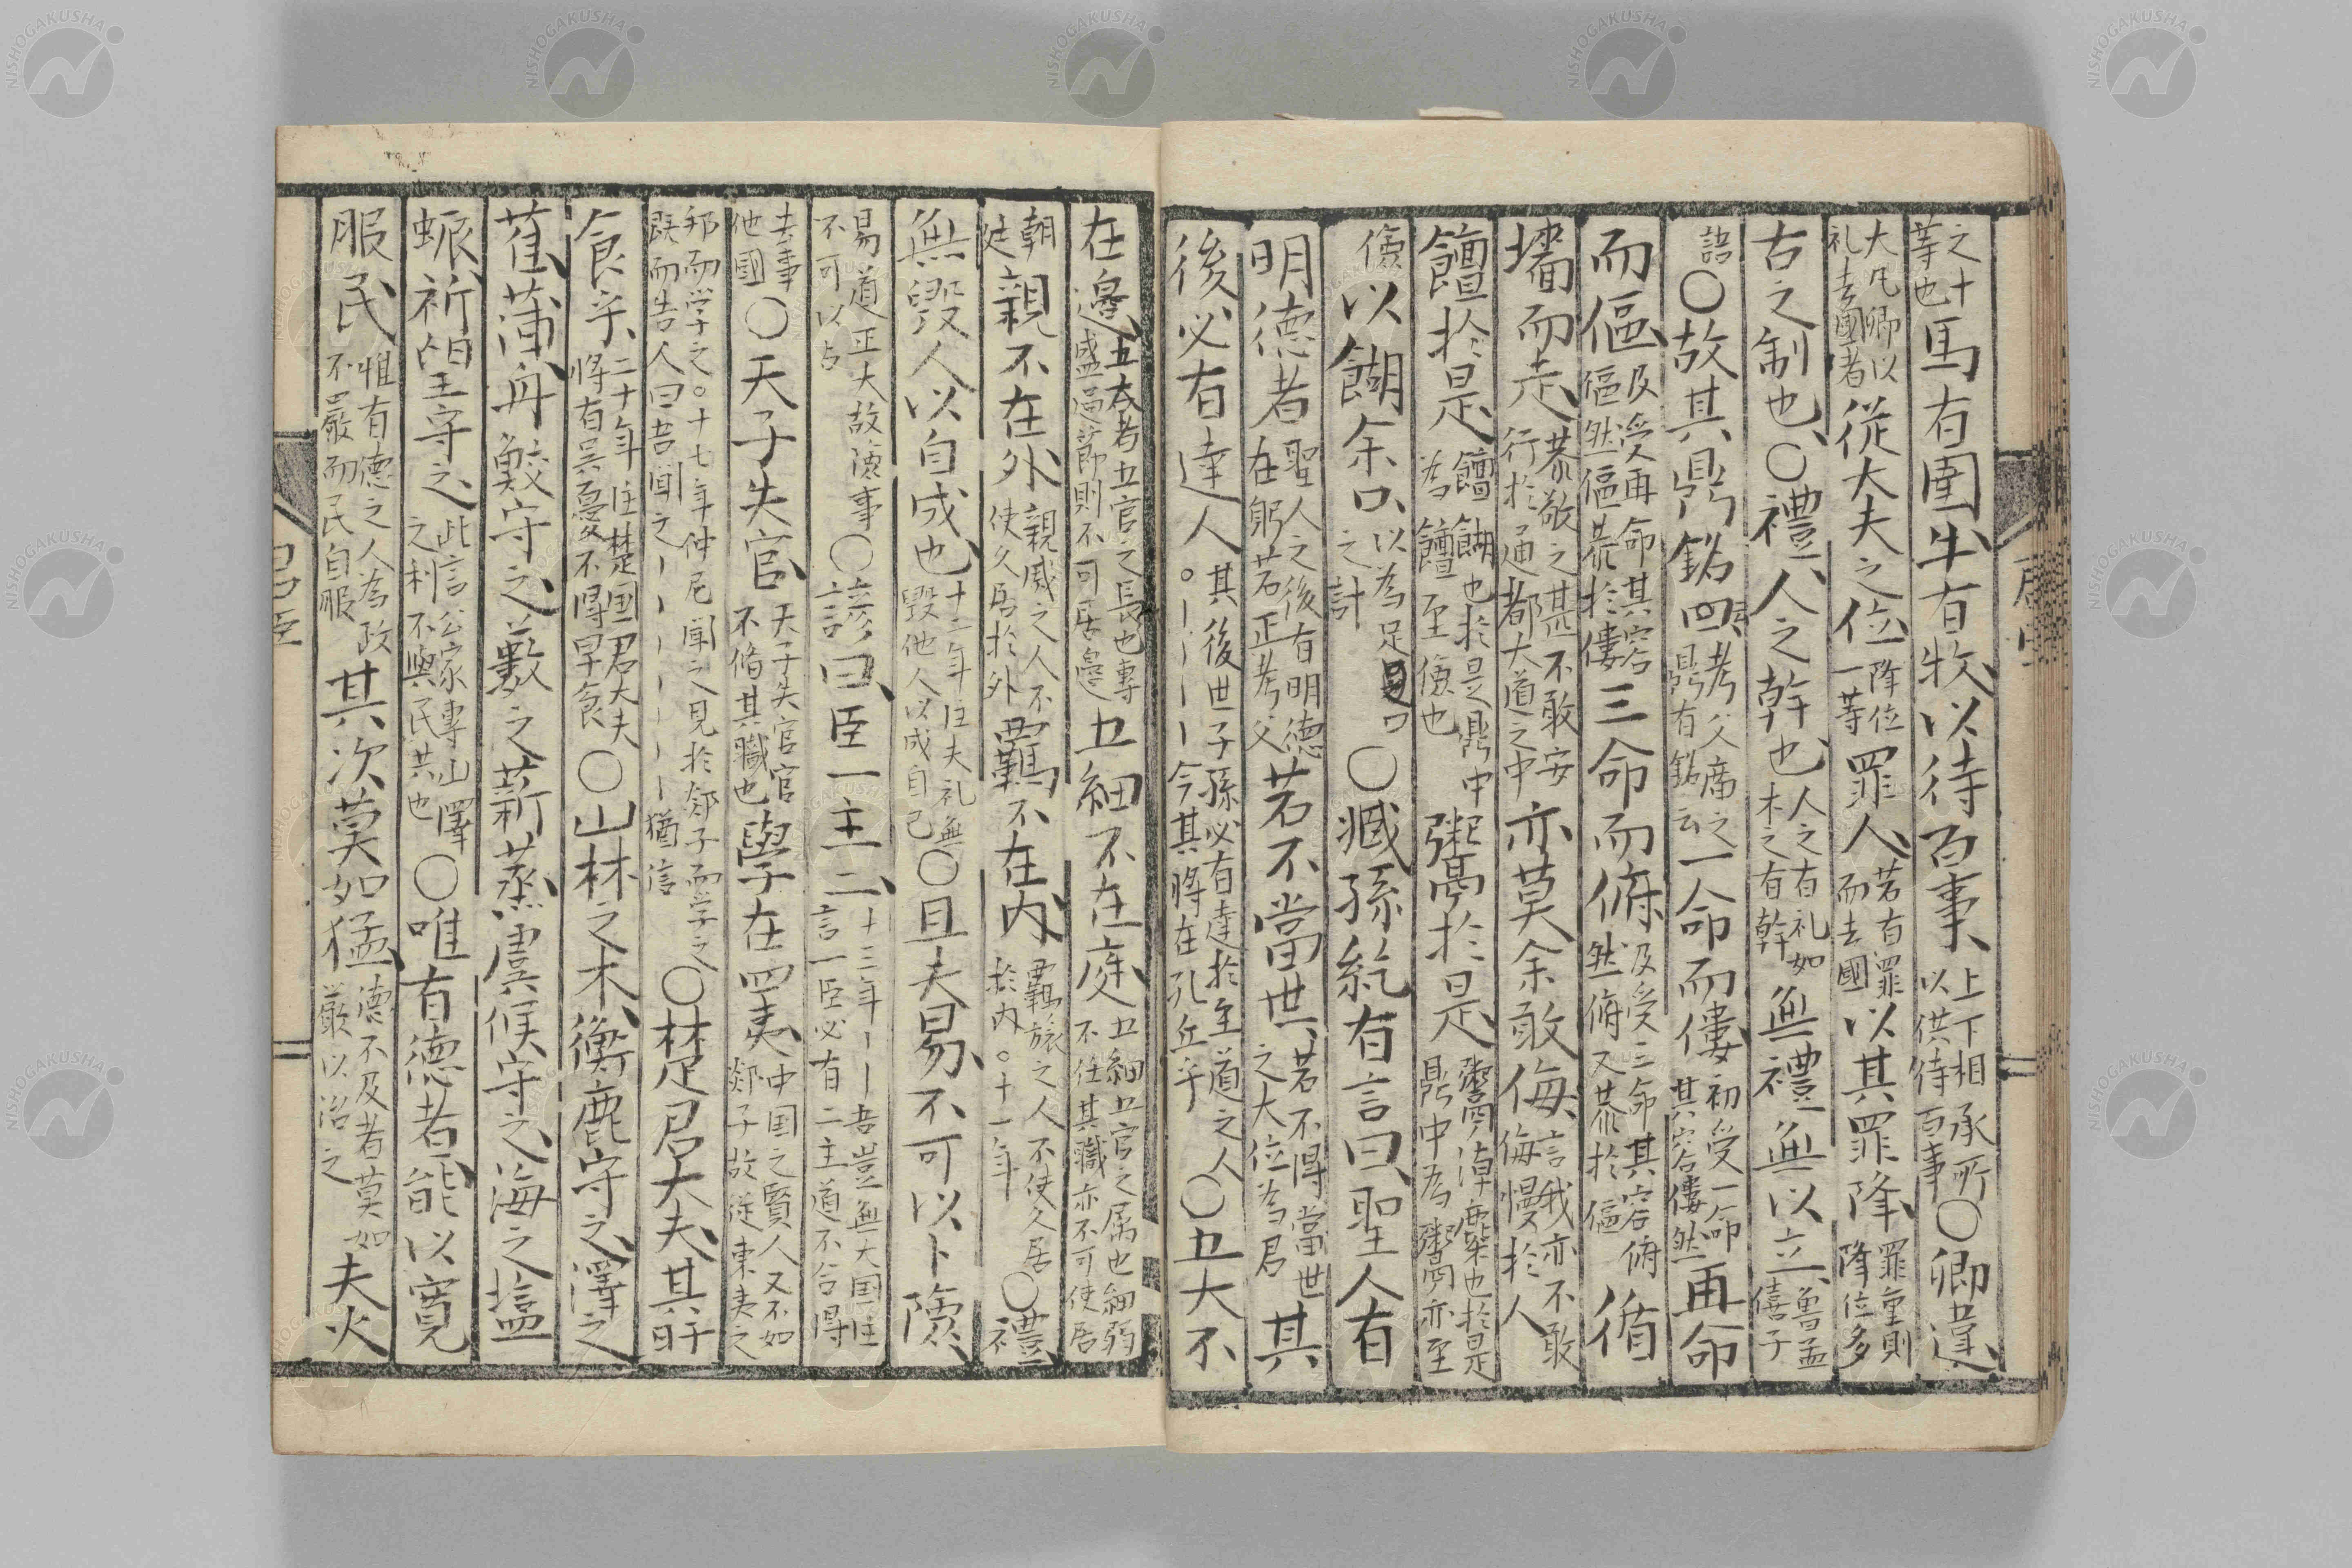 之十等也馬有圉牛有牧以待百事上下相承所以供待百事〇卿違
大凡卿以礼去國者從大夫之位降位一等罪人若有罪而去國以其罪降罪重則降位多
古之制也〇禮人之幹也人之有礼如木之有幹無禮無以立魯孟僖子
語〇故其鼎銘四考父廟之鼎有銘云一命而僂初受一命其容僂然再命
而傴及受再命其容傴然傴恭於僂三命而俯及受三命其容俯然俯又恭於傴循
墻而走恭敬之甚不敢安行於通都大道之中亦莫余敢侮言我亦不敢侮慢於人
饘於是饘餬也於是鼎中為饘至儉也鬻於是鬻淖糜也於是鼎中為鬻亦至
儉以餬余口以為足口之計〇臧孫紇有言曰聖人有
明德者聖人之後有明德在躬若正考父若不當世若不得當世之大位為君其
後必有達人。其後世子孫必有達於至道之人今其將在孔丘乎〇五大不
在邊五大者五官之長也專盛過節則不可居邊五細不在庭五細五官之属也細弱不任其職亦不可使居
朝廷親不在外親戚之人不使久居於外羈不在内羈旅之人不使久居於内。十一年〇禮
無毀人以自成也十二年往夫礼無毀他人以成自己〇且夫易不可以卜險
易道正大故險事不可以占〇諺曰臣一主二十三年吾豈無大国往言一臣必有二主道不合得
去事他國〇天子失官天子失官官不脩其職也學在四夷中国之賢人又不如郯子故從東夷之
邦而学之。十七年仲尼聞之見於郯子而学之既而告人曰吾聞之猶信〇楚君大夫其旰
食乎二十年往楚国君大夫將有吳憂不得早食〇山林之木衡鹿守之澤之
萑蒲舟鮫守之藪之薪蒸虞候守之海之塩
蜃祈望守之此言公家專山澤之利不與民共也〇唯有德者能以寬
服民惟有德之人為政不嚴而民自服其次莫如猛德不及者莫如嚴以治之夫火